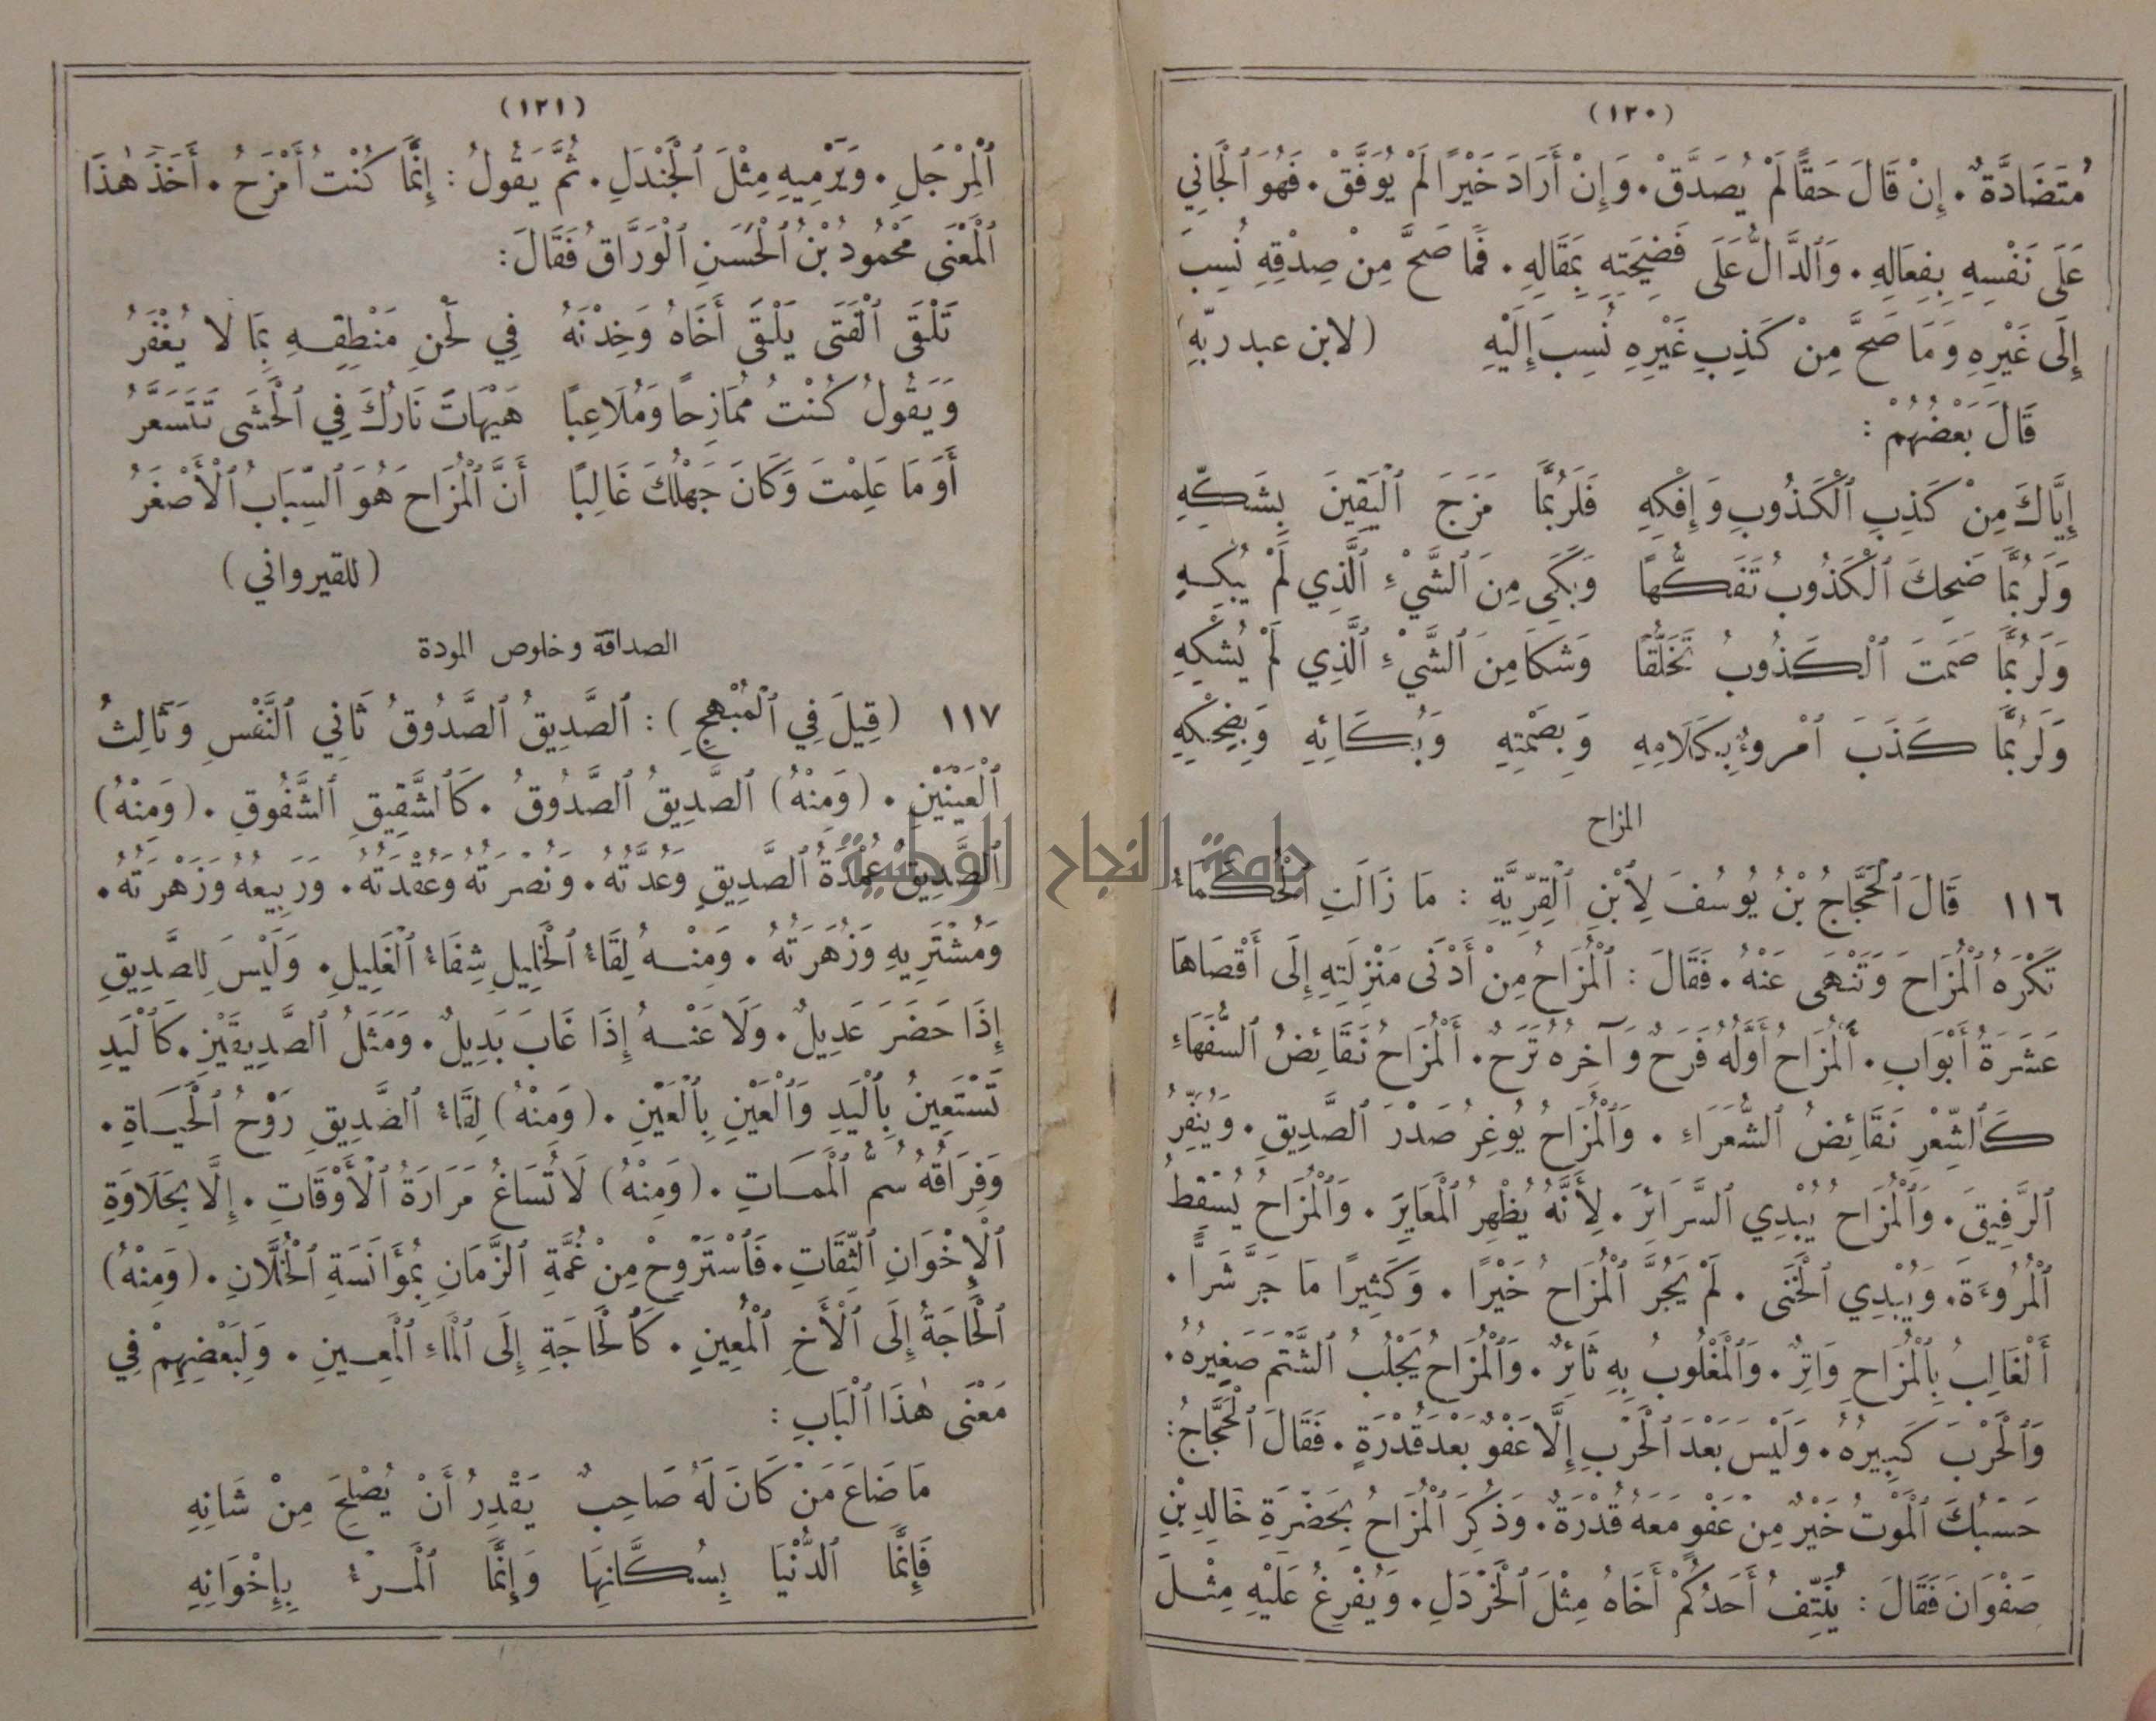 (١٢٠)
مُتَضَادَّةٌ. إِنْ قَالَ حَقًّا لَمْ يُصَدَّقْ. وَإِنْ أَرَادَ خَيْرًا لَمْ يُوَفَّقْ. فَهُوَ ٱلْجَانِي
عَلَى نَفْسِهِ بِفِعَالِهِ. وَٱلدَّالُّ عَلَى فَضِيحَتِهِ بِمَقَالِهِ. فَمَا صَحَّ مِنْ صِدْقِهِ نُسِبَ
إِلَى غَيْرِهِ وَمَا صَحَّ مِنْ كَذِبِ غَيْرِهِ نُسِبَ إِلَيْهِ (لابن عبد ربّه)
قَالَ بَعْضُهُمْ:
إِيَّاكَ مِنْ كَذِبِ ٱلْكَذُوبِ وَإِفْكِهِ فَلَرُبَّمَا مَزَجَ ٱلْيَقِينَ بِشَكِّهِ
وَلَرُبَّمَا ضَحِكَ ٱلْكَذُوبُ تَفَكُّهًا وَبَكَى مِنَ ٱلشَّيْءِ ٱلَّذِي لَمْ يُبْكِهِ
وَلَرُبَّمَا صَمَتَ ٱلْكَذُوبُ تَخَلُّقًا وَشَكَا مِنَ ٱلشَّيْءِ ٱلَّذِي لَمْ يُشْكِهِ
وَلَرُبَّمَا كَذَبَ ٱمْرُوءٌ بِكَلَامِهِ وَبِصَمْتِهِ وَبُكَائِهِ وَبِضِحْكِهِ
المزاح
١١٦ قَالَ ٱلْحَجَّاجُ بْنُ يُوسُفَ لِٱبْنِ ٱلْقِرِّيَّةِ: مَا زَالَتِ ٱلْحُكَمَاءُ
تَكْرَهُ ٱلْمُزَاحَ وَتَنْهَى عَنْهُ. فَقَالَ: ٱلْمُزَاحُ مِنْ أَدْنَى مَنْزِلَتِهِ إِلَى أَقْصَاهَا
عَشَرَةُ أَبْوَابٍ. أَلْمُزَاحُ أَوَّلُهُ فَرَحٌ وَآخِرُهُ تَرَحٌ. أَلْمُزَاحُ نَقَائِضُ ٱلسُّفَهَاءِ
كَٱلشِّعْرِ نَقَائِضُ ٱلشُّعَرَاءِ. وَٱلْمُزَاحُ يُوغِرُ صَدْرَ ٱلصَّدِيقِ. وَيُنَفِّرُ
ٱلرَّفِيقَ. وَٱلْمُزَاحُ يُبْدِي ٱلسَّرَائِرَ. لِأَنَّهُ يُظْهِرُ ٱلْمَعَايِرَ. وَٱلْمُزَاحُ يُسْقِطُ
ٱلْمُرُوءَةَ. وَيُبْدِي ٱلْخَنَى. لَمْ يَجُرَّ ٱلْمُزَاحُ خَيْرًا. وَكَثِيرًا مَا جَرَّ شَرًّا.
أَلْغَالِبُ بِٱلْمُزَاحِ وَاتِرٌ. وَٱلْمَغْلُوبُ بِهِ ثَائِرٌ. وَٱلْمُزَاحُ يَجْلُبُ ٱلشَّتْمَ صَغِيرُهُ.
وَٱلْحَرْبَ كَبِيرُهُ. وَلَيْسَ بَعْدَ ٱلْحَرْبِ إِلَّا عَفْوٌ بَعْدَ قُدْرَةٍ. فَقَالَ ٱلْحَجَّاجُ:
حَسْبُكَ ٱلْمَوْتُ خَيْرٌ مِنْ عَفْوٍ مَعَهُ قُدْرَةٌ. وَذُكِرَ ٱلْمُزَاحُ بِحَضْرَةِ خَالِدِ بْنِ
صَفْوَانَ فَقَالَ: يُنَتِّفُ أَحَدُكُمْ أَخَاهُ مِثْلَ ٱلْخَرْدَلِ. وَيُفْرِغُ عَلَيْهِ مِثْلَ
(١٢١)
ٱلْمِرْجَلِ. وَيَرْمِيهِ مِثْلَ ٱلْجَنْدَلِ. ثُمَّ يَقُولُ: إِنَّمَا كُنْتُ أَمْزَحُ. أَخَذَ هٰذَا
ٱلْمَعْنَى مَحْمُودُ بْنُ ٱلْحَسَنِ ٱلْوَرَّاقُ فَقَالَ:
تَلْقَى ٱلْفَتَى يَلْقَى أَخَاهُ وَخِدْنَهُ فِي لَحْنِ مَنْطِقِهِ بِمَا لَا يُغْفَرُ
وَيَقُولُ كُنْتُ مُمَازِحًا وَمُلَاعِبًا هَيْهَاتَ نَارُكَ فِي ٱلْحَشَى تَتَسَعَّرُ
أَوَمَا عَلِمْتَ وَكَانَ جَهْلُكَ غَالِبًا أَنَّ ٱلْمُزَاحَ هُوَ ٱلسِّبَابُ ٱلْأَصْغَرُ
(للقيرواني)
الصداقة وخلوص المودة
١١٧ (قِيلَ فِي ٱلْمُبْهِجِ): ٱلصَّدِيقُ ٱلصَّدُوقُ ثَانِي ٱلنَّفْسِ وَثَالِثُ
ٱلْعَيْنَيْنِ. (وَمِنْهُ) ٱلصَّدِيقُ ٱلصَّدُوقُ. كَٱلشَّقِيقِ ٱلشَّفُوقِ. (وَمِنْهُ)
ٱلصَّدِيقُ عُمْدَةُ ٱلصَّدِيقِ وَعُدَّتُهُ. وَنُصْرَتُهُ وَعُقْدَتُهُ. وَرَبِيعُهُ وَزَهْرَتُهُ.
وَمُشْتَرِيهِ وَزُهَرَتُهُ. وَمِنْهُ لِقَاءُ ٱلْخَلِيلِ شِفَاءُ ٱلْغَلِيلِ. وَلَيْسَ لِلصَّدِيقِ
إِذَا حَضَرَ عَدِيلٌ. وَلَا عَنْهُ إِذَا غَابَ بَدِيلٌ. وَمَثَلُ ٱلصَّدِيقَيْنِ. كَٱلْيَدِ
تَسْتَعِينُ بِٱلْيَدِ وَٱلْعَيْنِ بِٱلْعَيْنِ. (وَمِنْهُ) لِقَاءُ ٱلصَّدِيقِ رَوْحُ ٱلْحَيَاةِ.
وَفِرَاقُهُ سُمُّ ٱلْمَمَاتِ. (وَمِنْهُ) لَا تُسَاغُ مَرَارَةُ ٱلْأَوْقَاتِ. إِلَّا بِحَلَاوَةِ
ٱلْإِخْوَانِ ٱلثِّقَاتِ. فَٱسْتَرْوِحْ مِنْ غُمَّةِ ٱلزَّمَانِ بِمُؤَانَسَةِ ٱلْخُلَّانِ. (وَمِنْهُ)
ٱلْحَاجَةُ إِلَى ٱلْأَخِ ٱلْمُعِينِ. كَٱلْحَاجَةِ إِلَى ٱلْمَاءِ ٱلْمَعِينِ. وَلِبَعْضِهِمْ فِي
مَعْنَى هٰذَا ٱلْبَابِ:
مَا ضَاعَ مَنْ كَانَ لَهُ صَاحِبٌ يَقْدِرُ أَنْ يُصْلِحَ مِنْ شَانِهِ
فَإِنَّمَا ٱلدُّنْيَا بِسُكَّانِهَا وَإِنَّمَا ٱلْمَرْءُ بِإِخْوَانِهِ
جامعة النجاح الوطنية